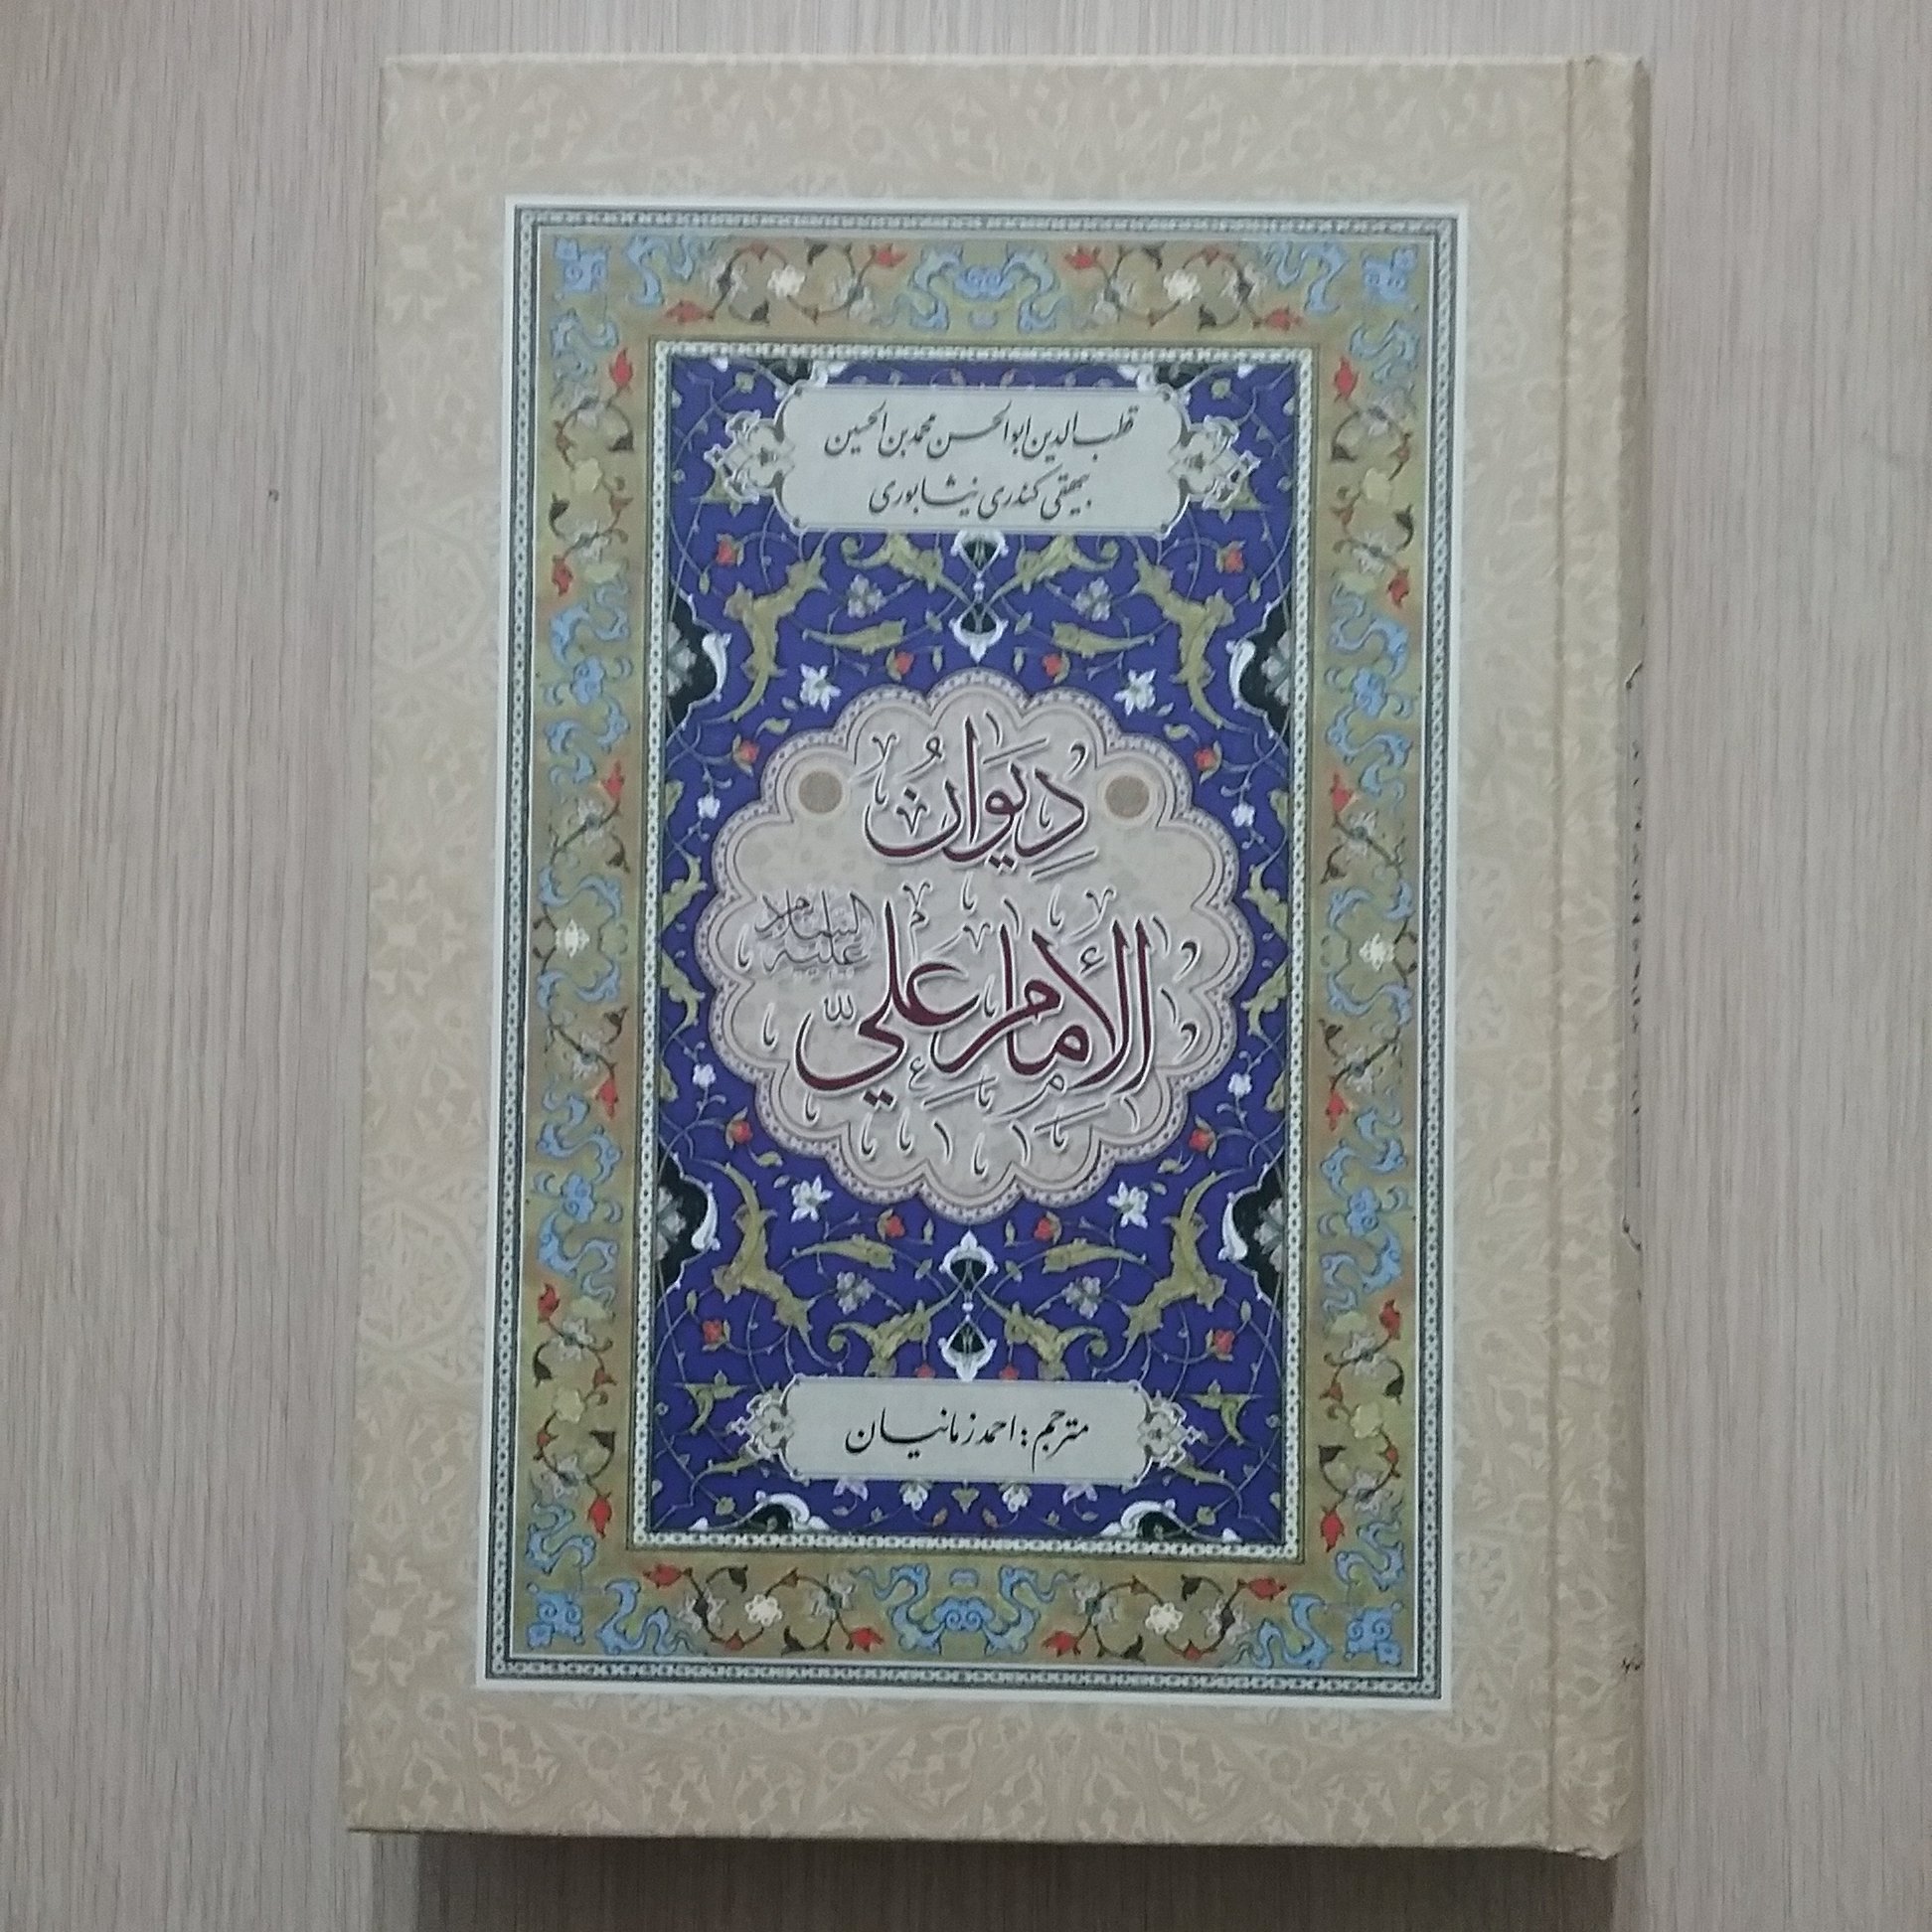 قطب الدین ابوالحسن محمد بن الحسین
بیهقی کندری نیشابوری
دِیوَانُ
الإمَامِ عَلِيّ
علیه السلام
مترجم : احمد زمانیان